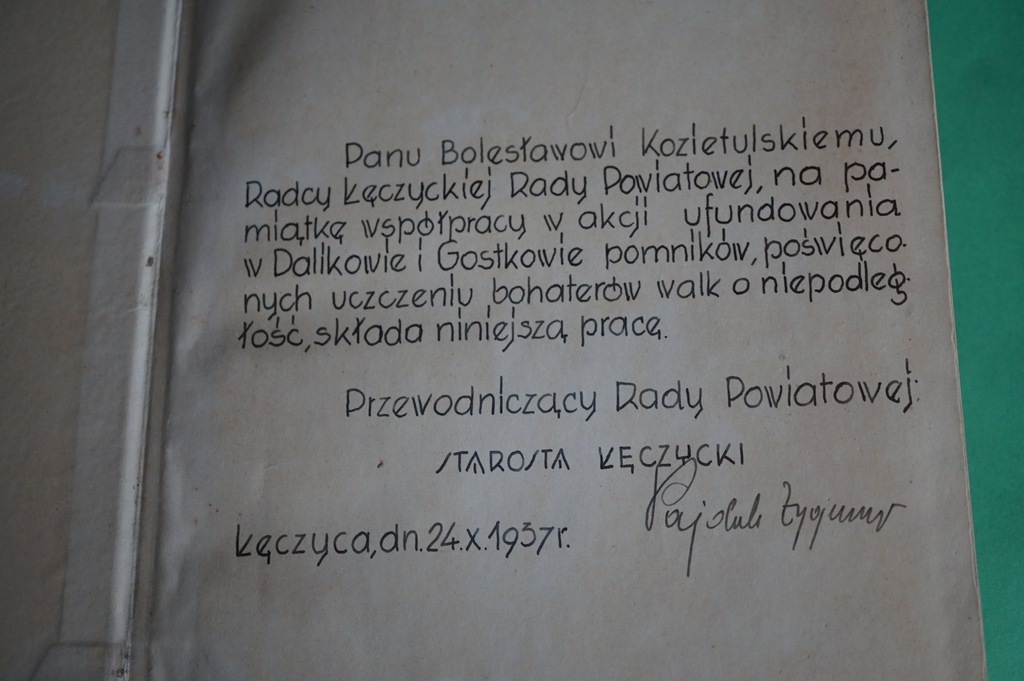 Panu Bolesławowi Kozietulskiemu,
Radcy Łęczyckiej Rady Powiatowej, na pa-
miątkę współpracy w akcji ufundowania
w Dalikowie i Gostkowie pomników, poświęco-
nych uczczeniu bohaterów walk o niepodleg-
łość, składa niniejszą pracę.
Przewodniczący Rady Powiatowej:
STAROSTA ŁĘCZYCKI
Zygmunt
Łęczyca, dn. 24.X.1937r.